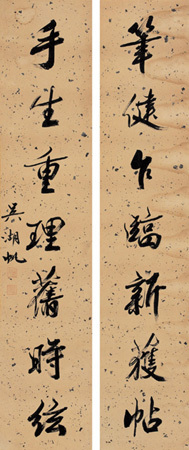 筆健乍臨新獲帖
手生重理舊時絃
吳湖帆